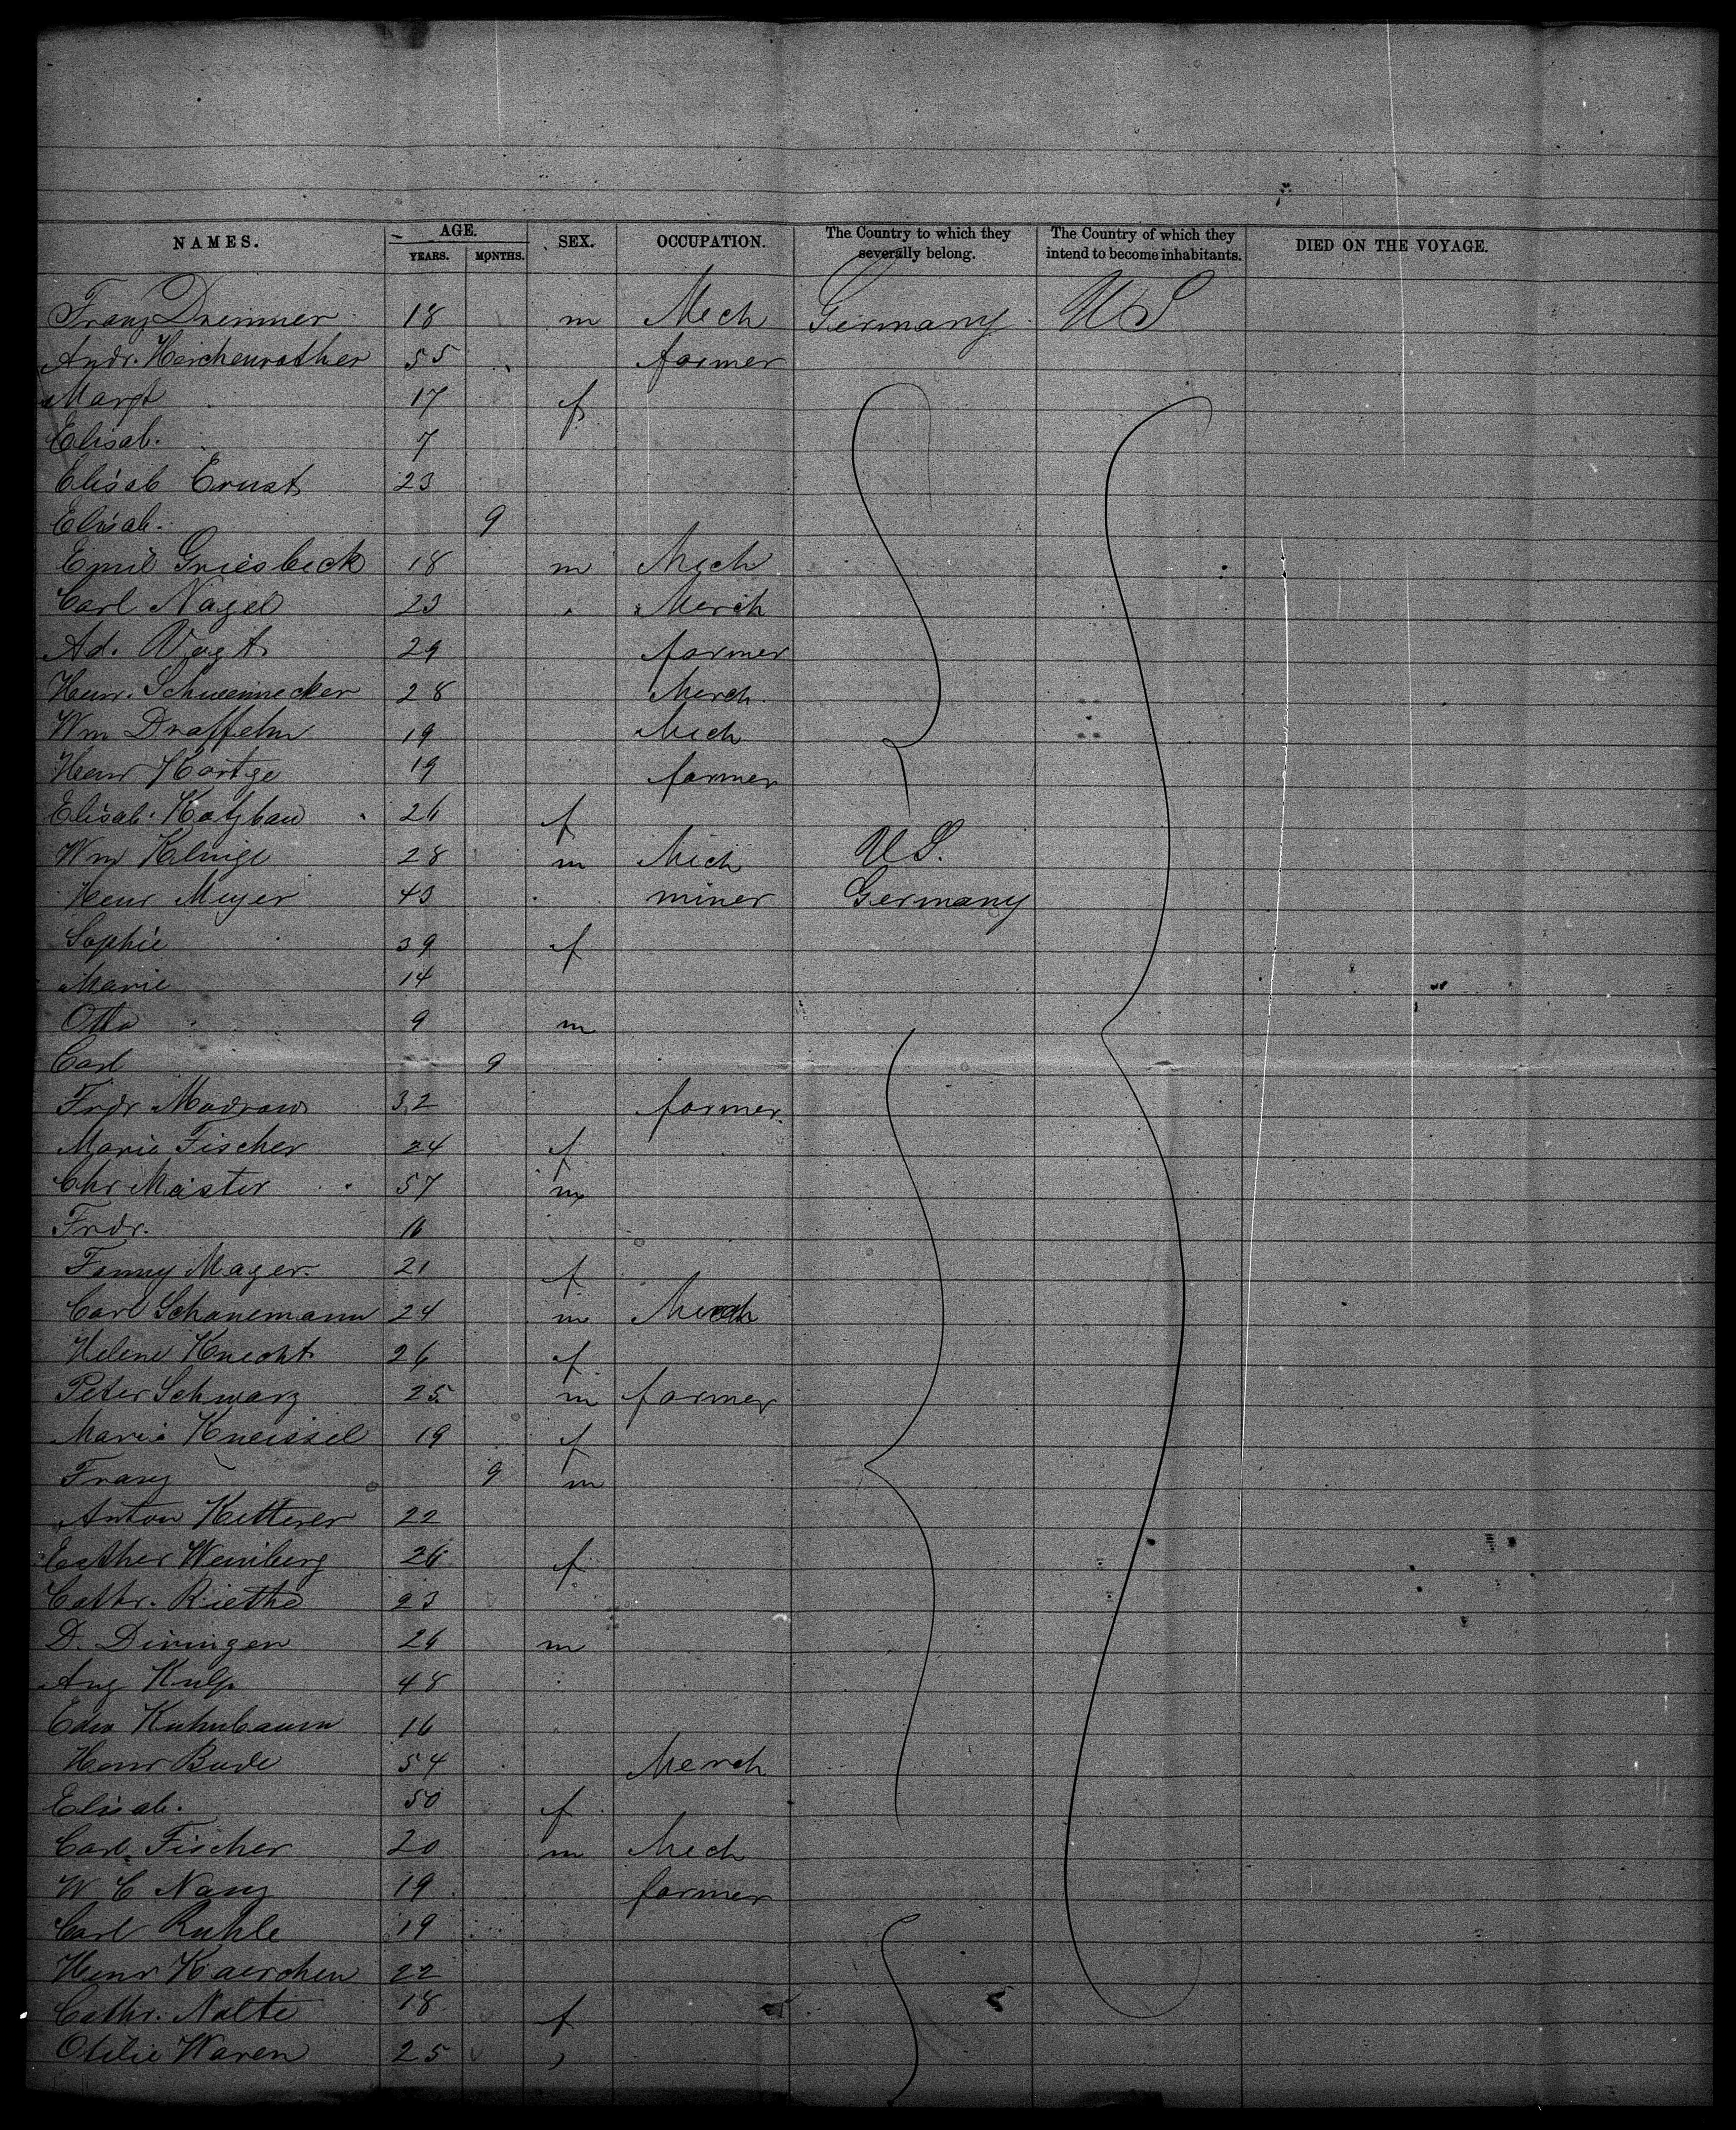 NAMES. AGE. SEX. OCCUPATION. The Country to which they severally belong. The Country of which they intend to become inhabitants. DIED ON THE VOYAGE.
YEARS. MONTHS.
Franz Dremmer 18 m Mech Germany US
Andr. Herchenrother 55 farmer
Margt 17 f
Elisab. 7
Elisab Ernst 23
Elisab. 9
Emil Griesbeck 18 m Mech
Carl Nagel 23 Merch
Ad. Vogt 29 farmer
Henr. Schwennecker 28 Merch
Wm 19 Mech
Henr Kortge 19 farmer
Elisab. Katzbau 26 f
Wm Kluige 28 m Mech U.S.
Henr Meyer 43 miner Germany
Sophie 39 f
Marie 14
Otto 9 m
Carl 9
Frdr Modrow 32 farmer
Marie Fischer 24 f
Chr Meister 57 m
Frdr. 16
Fanny Mager 21 f
Carl Schanemann 24 m
Helene Knecht 26 f
Peter Schwarz 25 m farmer
Marie Kneissel 19 f
Franz 9 m
Anton Ketterer 22
Esther Weinberg 26 f
Cathr. Riethe 23
D. Diringen 26 m
Aug Kulp 48
Edw Kuhnbaum 16
Henr Bude 54 Merch
Elisab. 50 f
Carl Fischer 20 m Mech
W C Nanz 19 farmer
Carl Ruhle 19
Henr Kaerchen 22
Cathr. Nolte 18 f
Otilie Waren 25